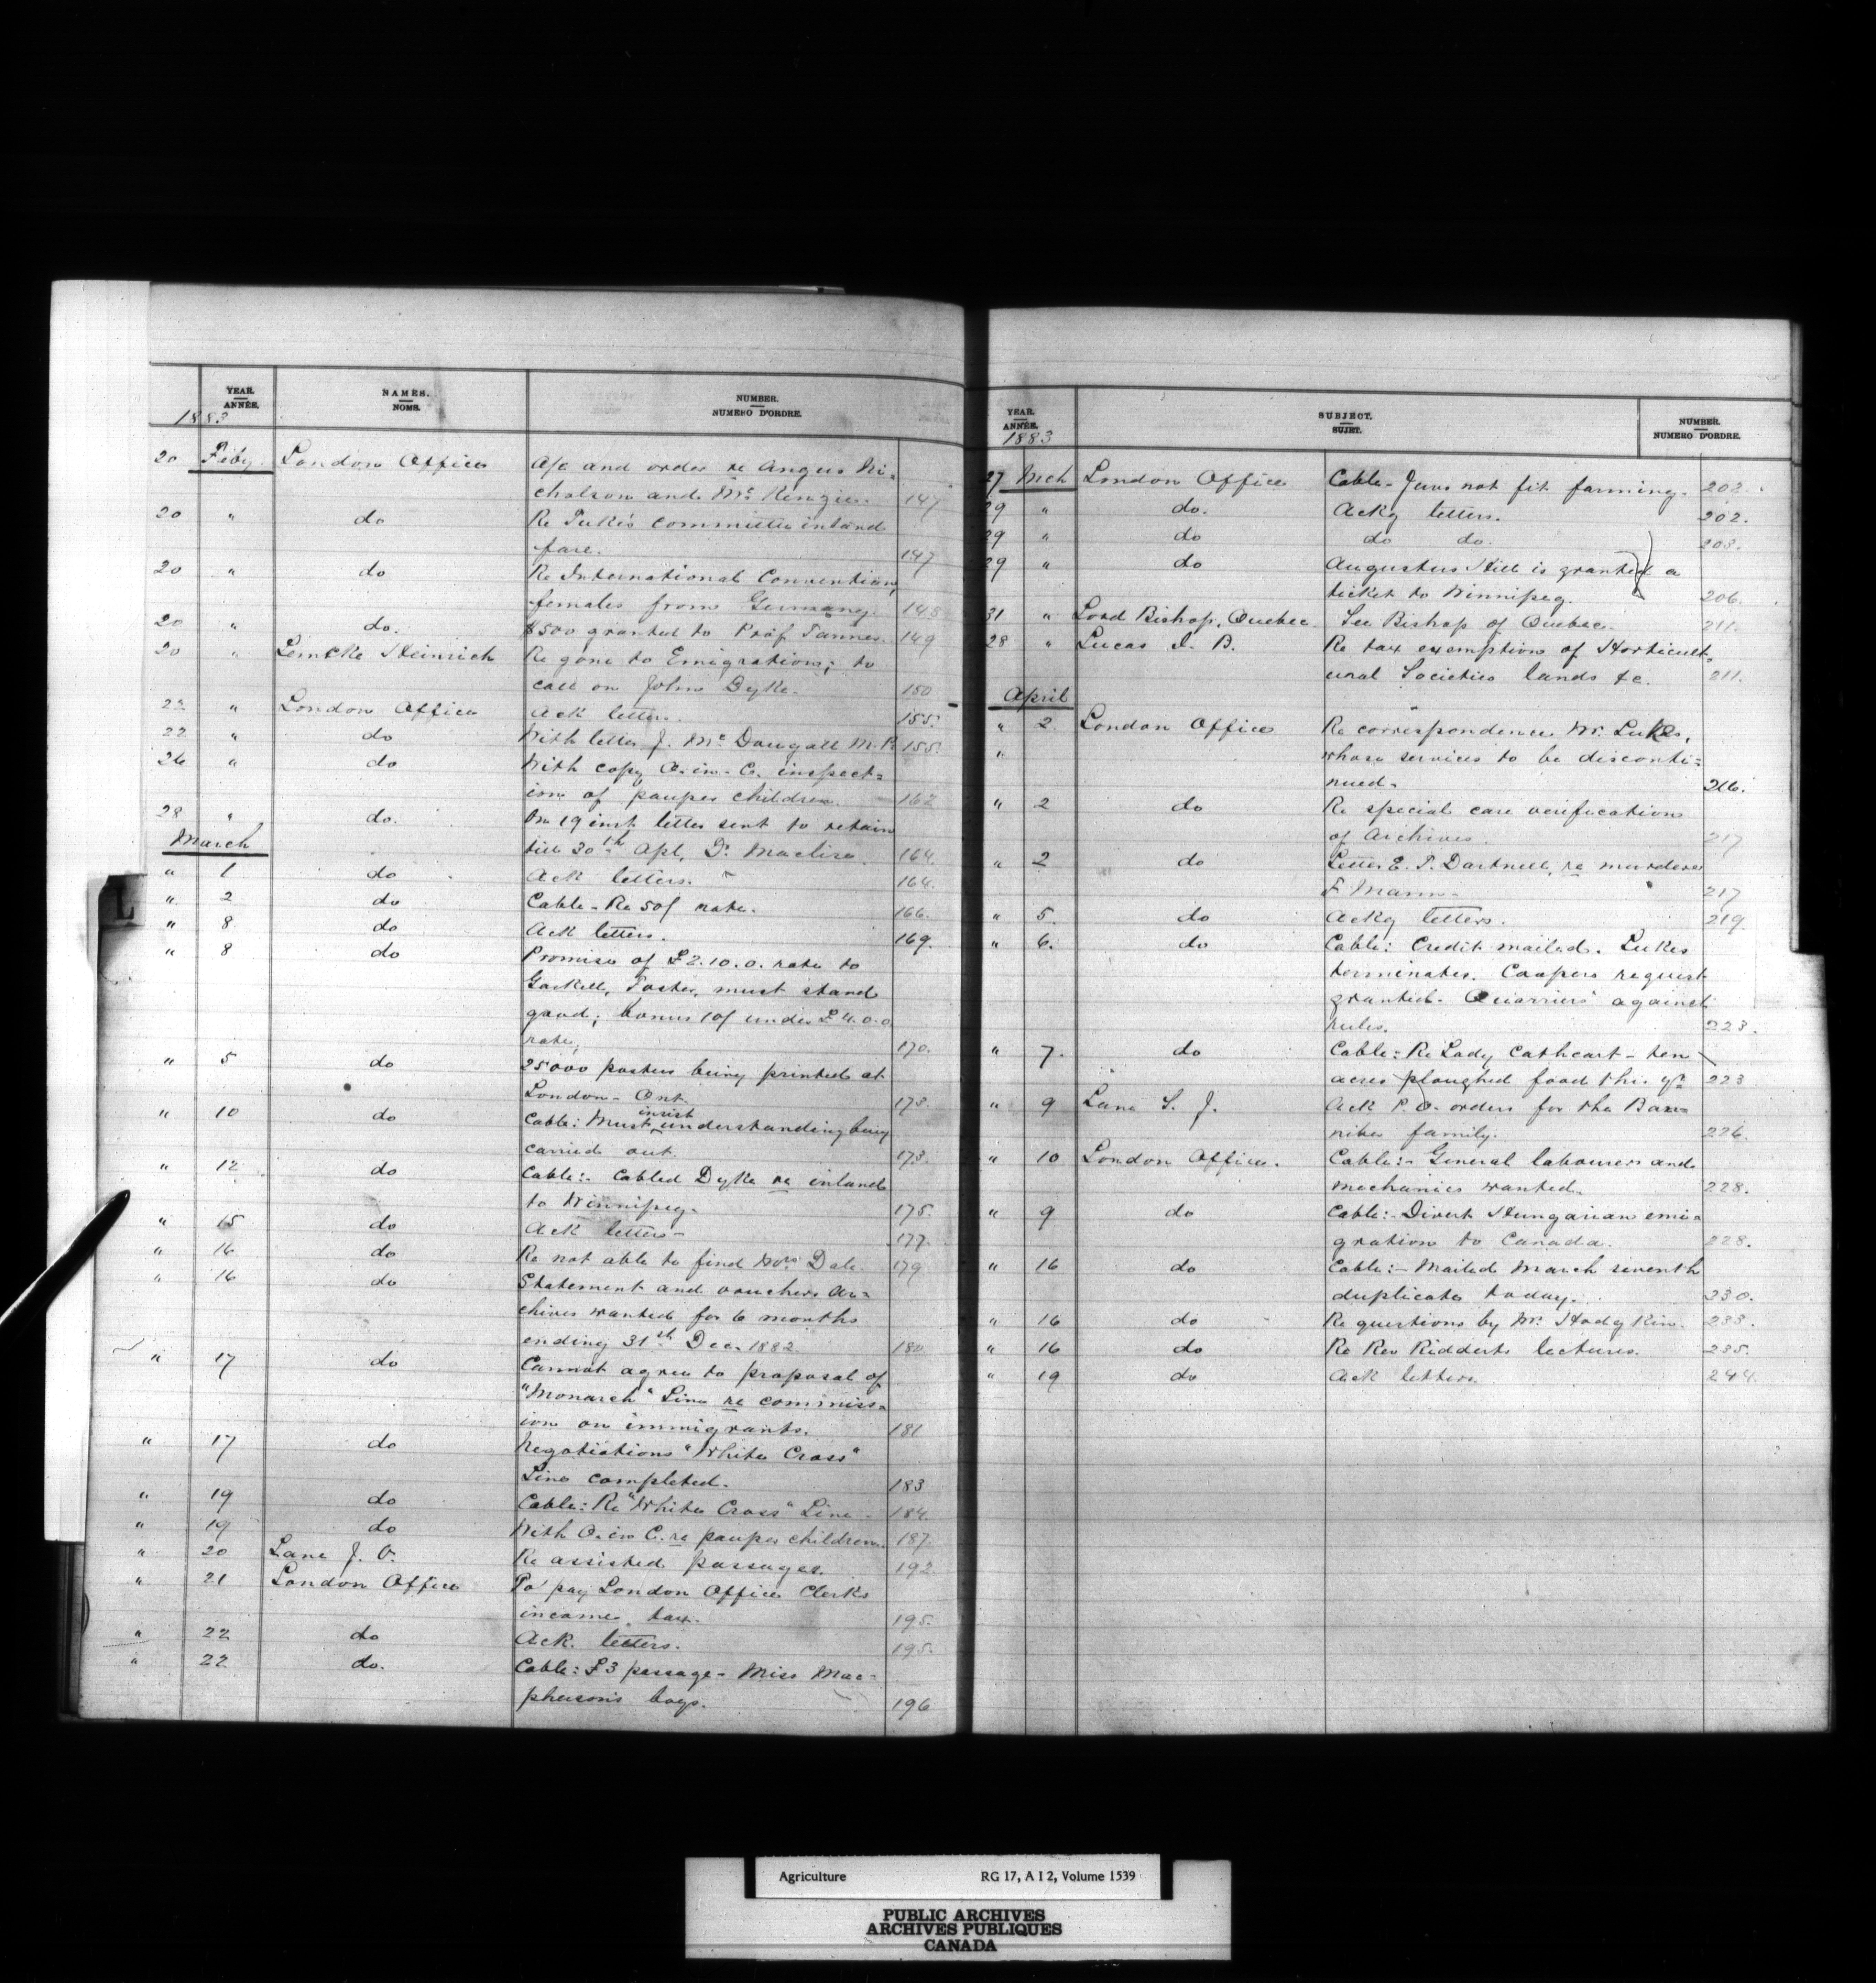 YEAR. NAMES. NUMBER.
ANNÉE. NOMS. NUMERO D'ORDRE.
1883
20 Feby. London Office A/c and order re Angus Ni=
cholson and McKenzie. 147
20 " do Re Tuke's committee inland
fare. 147
20 " do Re International Convention,
females from Germany. 148
20 " do. $500 granted to Prof. Tanner. 149
20 " Lemcke Heinrich Re gone to Emigration; to
call on John Dyke. 150
22 " London Office Ack letter. 155.
22 " do With letter J. McDougall M.P. 155.
26 " do With copy O. in. C. inspect=
ion of pauper children. 162
28 " do. On 19 inst. letter sent to retain
March till 30th Apl, Dr. Maclise. 164.
" 1 do Ack letters. 164.
" 2 do Cable - Re 50/ rate. 166.
" 8 do Ack letters. 169.
" 8 do Promise of £2.10.0. rate to
Gaskell, Foster, must stand
good; bonus 10/ under £4.0.0
rate, 170.
" 5 do 25000 posters being printed at
London - Ont. 173.
" 10 do Cable: Must insist understanding being
carried out. 173.
" 12 do Cable:- Cabled Dyke re inland
to Winnipeg. 175.
" 15 do Ack letters - 177.
" 16 do Re not able to find Mrs Dale. 179
" 16 do Statement and vouchers Ar=
chives wanted for 6 months
ending 31st Dec. 1882. 180
" 17 do Cannot agree to proposal of
"Monarch" Line re commiss=
ion on immigrants. 181
" 17 do Negotiations "White Cross"
Line completed. 183
" 19 do Cable: Re "White Cross" Line - 184.
" 19 do With O. in C. re pauper children. 187.
" 20 Lane J. V. Re assisted passages. 192
" 21 London Office To pay London Office Clerks
income tax. 195.
" 22 do Ack. letters. 195.
" 22 do. Cable: £3 passage - Miss Mac=
pherson's boys. 196
L
YEAR. SUBJECT. NUMBER.
ANNÉE. SUJET. NUMERO D'ORDRE.
1883
27 Mch London Office Cable - Jews not fit farming. 202.
29 " do. Ackg letters. 202.
29 " do do do. 203.
29 " do Augustus Hill is granted a
ticket to Winnipeg. 206.
31 " Lord Bishop, Quebec. See Bishop of Quebec. 211.
28 " Lucas I. B. Re tax exemption of Horticult=
ural Societies lands &c. 211.
April
" 2. London Office Re correspondence Mr. Lukes,
" whose services to be disconti=
nued. 216.
" 2 do Re special care verification
of Archives. 217
" 2 do Letter E. T. Dartnell, re murderer
F Mann - 217
" 5. do Ackg letters. 219.
" 6. do Cable: Credit mailed. Lukes
terminates. Coopers request
granted. Quarriers against
rules. 223.
" 7. do Cable: Re Lady Cathcart - ten
acres ploughed food this yr. 223
" 9 Lane S. J. Ack P. O. orders for the Bar=
nikes family. 226.
" 10 London Office. Cable:- General labourers and
mechanics wanted. 228.
" 9 do Cable:- Divert Hungarian emi=
gration to Canada. 228.
" 16 do Cable:- Mailed March seventh
duplicate today. 230.
" 16 do Re questions by Mr. Hodgkin. 233.
" 16 do Re Rev Ridderts lectures. 235.
" 19 do Ack letters. 244.
Agriculture RG 17, A I 2, Volume 1539
PUBLIC ARCHIVES
ARCHIVES PUBLIQUES
CANADA